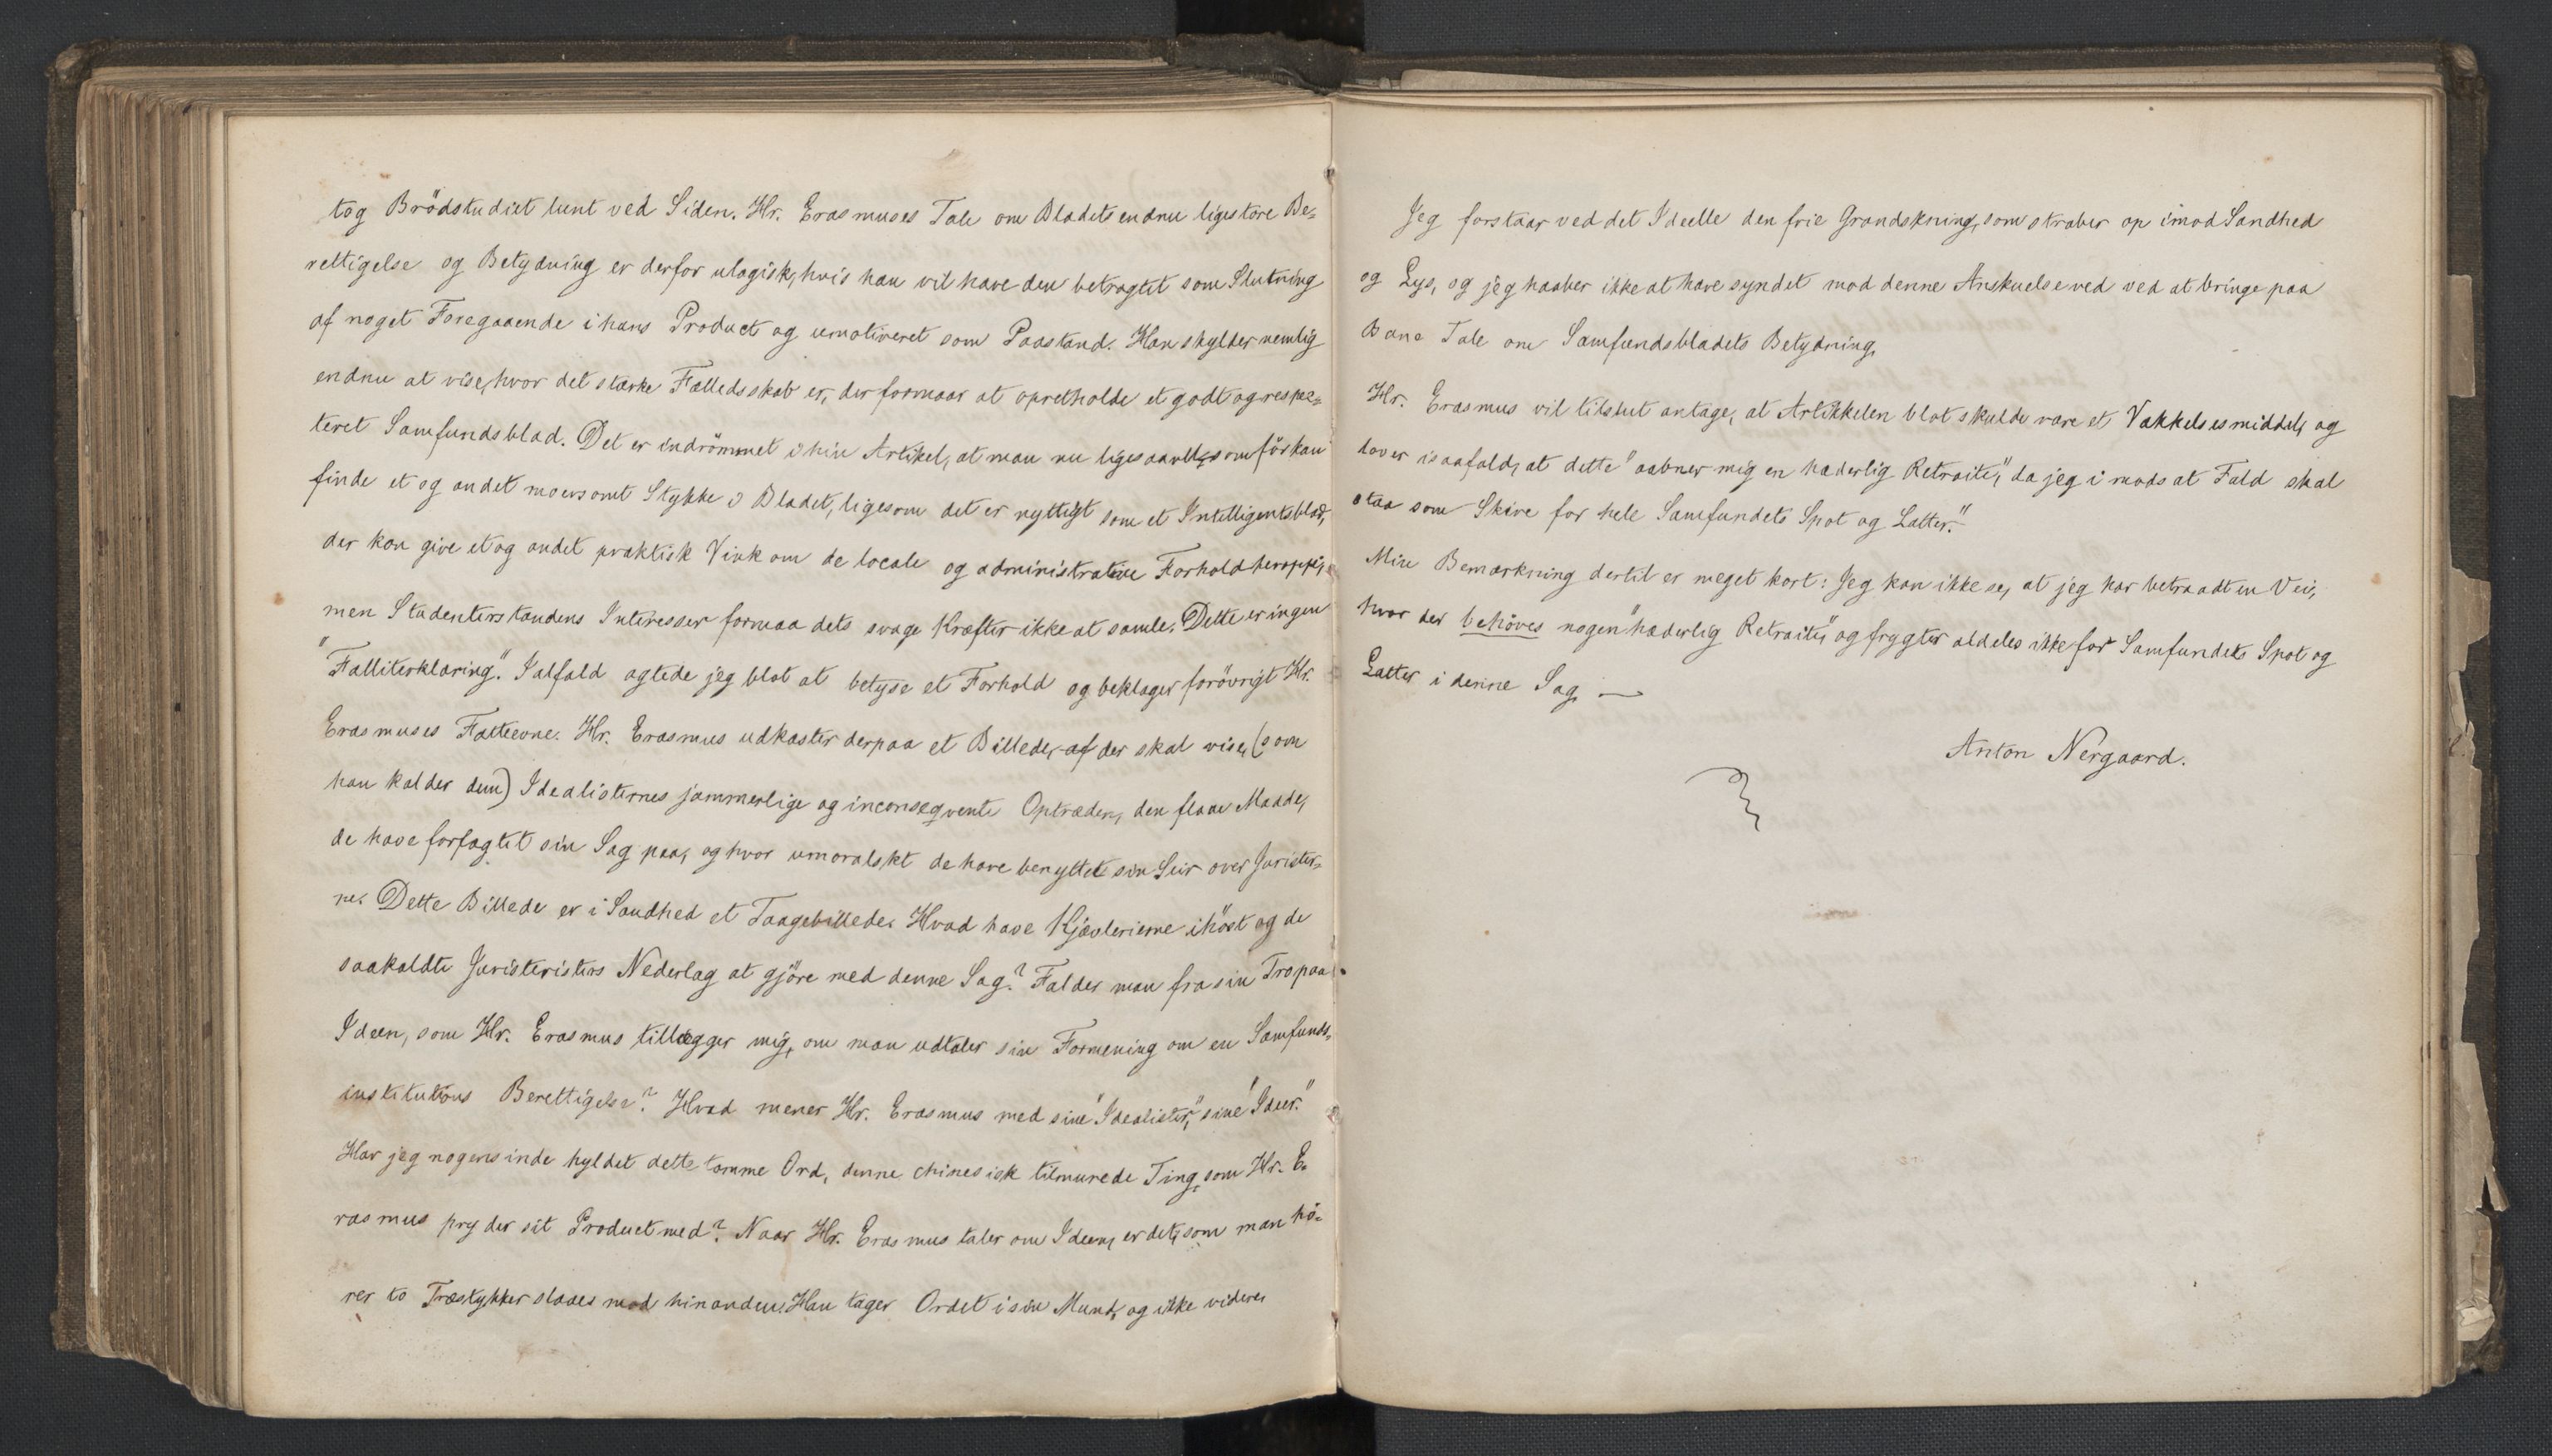 tog Brödstudiet lunt ved Siden. Hr. Erasmuses Tale om Bladets endnu ligestore Be-
rettigelse og Betydning er derfor ulogisk, hvis han vil have den betragtet som Slutning
af noget Foregaaende i hans Product og umotiveret som Paastand. Han skylder nemlig
endnu at vise, hvor det stærke Fælledsskab er, der formaar at opretholde et godt og respec-
teret Samfundsblad. Det er indrömmet i hin Artikel, at man nu ligesaavel, som för kan
finde et og andet morsomt Stykke i Bladet, ligesom det er nyttigt som et Intelligentsblad,
der kan give et og andet praktisk Vink om de locale og administrative Forhold heroppe,
men Studenterstandens Interesser formaa dets svage Kræfter ikke at samle. Dette er ingen
"Falliterklæring". Ialfald agtede jeg blot at betyde et Forhold og beklager forövrigt Hr.
Erasmuses Fatteevne. Hr. Erasmus udkaster derpaa et Billede, af der skal vise, (som
han kalder dem) Idealisternes jammerlige og inconseqvente Optræden, den flaue Maade,
de have forfægtet sin Sag paa, og hvor umoralskt de have benyttet sin Seir over Jurister-
ne. Dette Billede er i Sandhed et Taagebillede. Hvad have Kjævlerierne ihöst og de
saakaldte Juristeristers Nederlag at gjöre med denne Sag? Falder man fra sin Tro paa
Ideen, som Hr. Erasmus tillægger mig, om man udtaler sin Formening om en Samfunds-
institutions Berettigelse? Hvad mener Hr. Erasmus med sine "Idealister," sine "Ideer."
Har jeg nogensinde hyldet dette tomme Ord, denne chinesisk tilmurede Ting, som Hr. E-
rasmus pryder sit Product med? Naar Hr. Erasmus taler om Ideen, er det, som man hö-
rer to Træstykker slaaes mod hinanden. Han tager Ordet i sin Mund, og ikke videre.
Jeg forstaar ved det Ideelle den frie Grandskning, som stræber op imod Sandhed
og Lys, og jeg haaber ikke at have syndet mod denne Anskuelse ved ved at bringe paa
Bane Tale om Samfundsbladets Betydning.
Hr. Erasmus vil tilslut antage, at Artikkelen blot skulde være et Vækkelsesmiddel, og
lover isaafald, at dette "aabner mig en hæderlig Retraite," da jeg i modsat Fald skal
staa som Skive for hele Samfundets Spot og Latter."
Min Bemærkning dertil er meget kort: Jeg kan ikke se, at jeg har betraadt en Vei,
hvor der behöves nogen "hæderlig Retraite," og frygter aldeles ikke for Samfundets Spot og
Latter i denne Sag. —
Anton Nergaard.